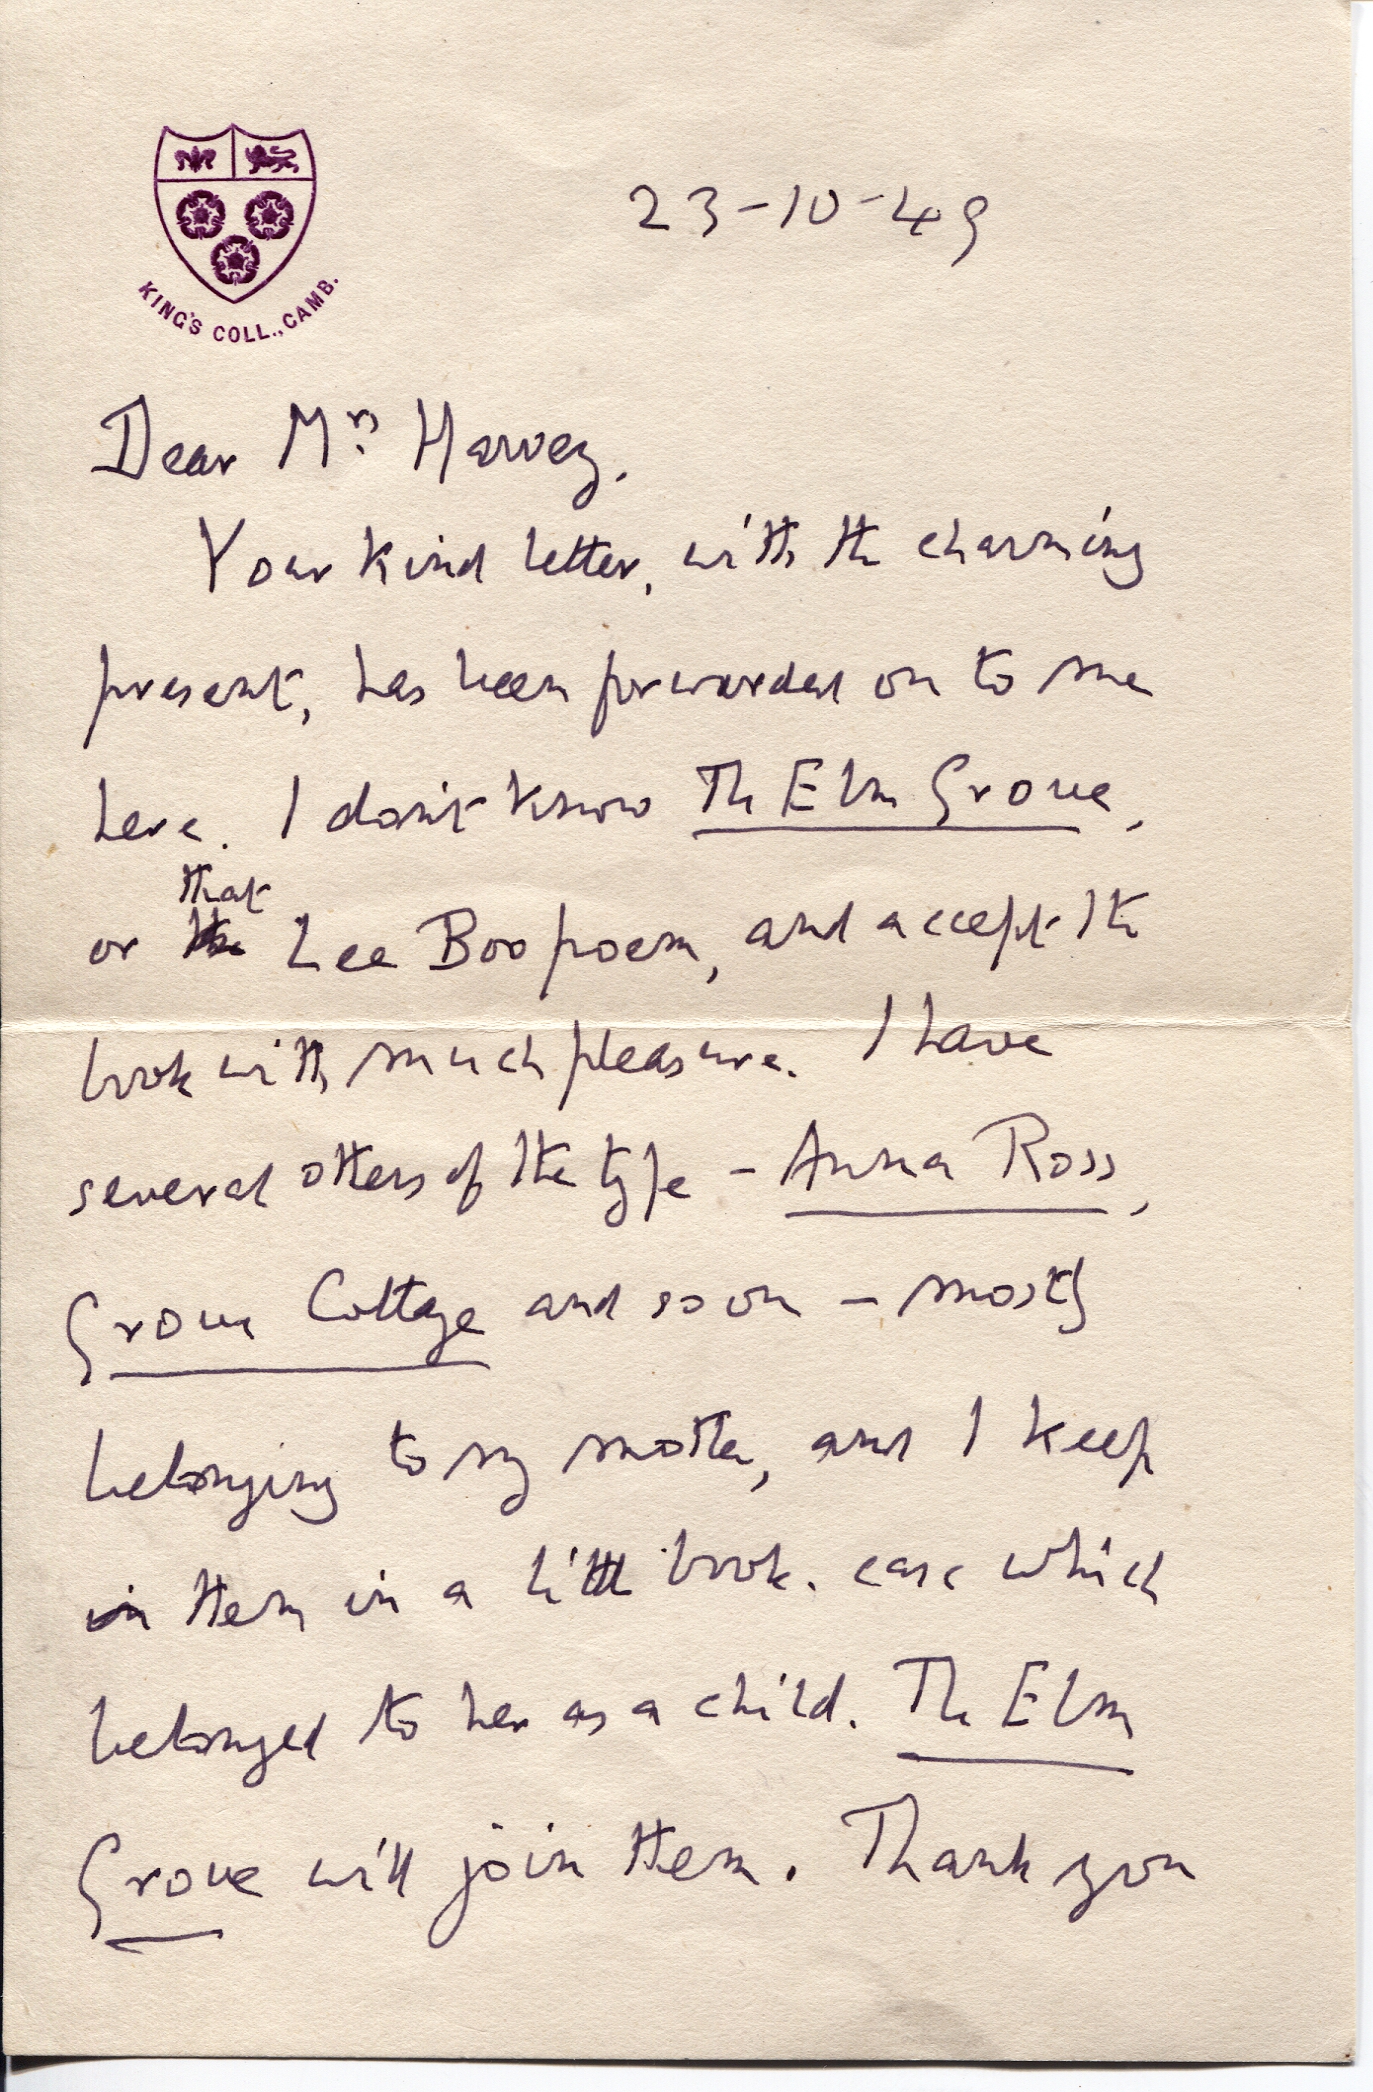 KING'S COLL., CAMB.
23-10-49
Dear Mrs. Harvey.
Your kind letter, with the charming
present, has been forwarded on to me
here. I don't know The Elm Grove,
that
or the Lee Boo poem, and accept the
book with much pleasure. I have
several others of the type – Anna Ross,
Grove Cottage and so on – mostly
belonging to my mother, and I keep
in them in a little book-case which
belonged to her as a child. The Elm
Grove will join them. Thank you